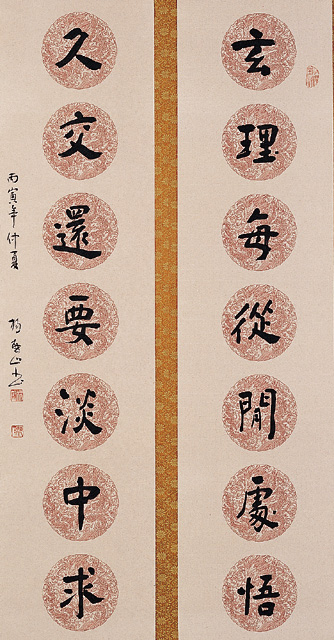 玄理每從閒處悟
久交還要淡中求
丙寅年仲夏